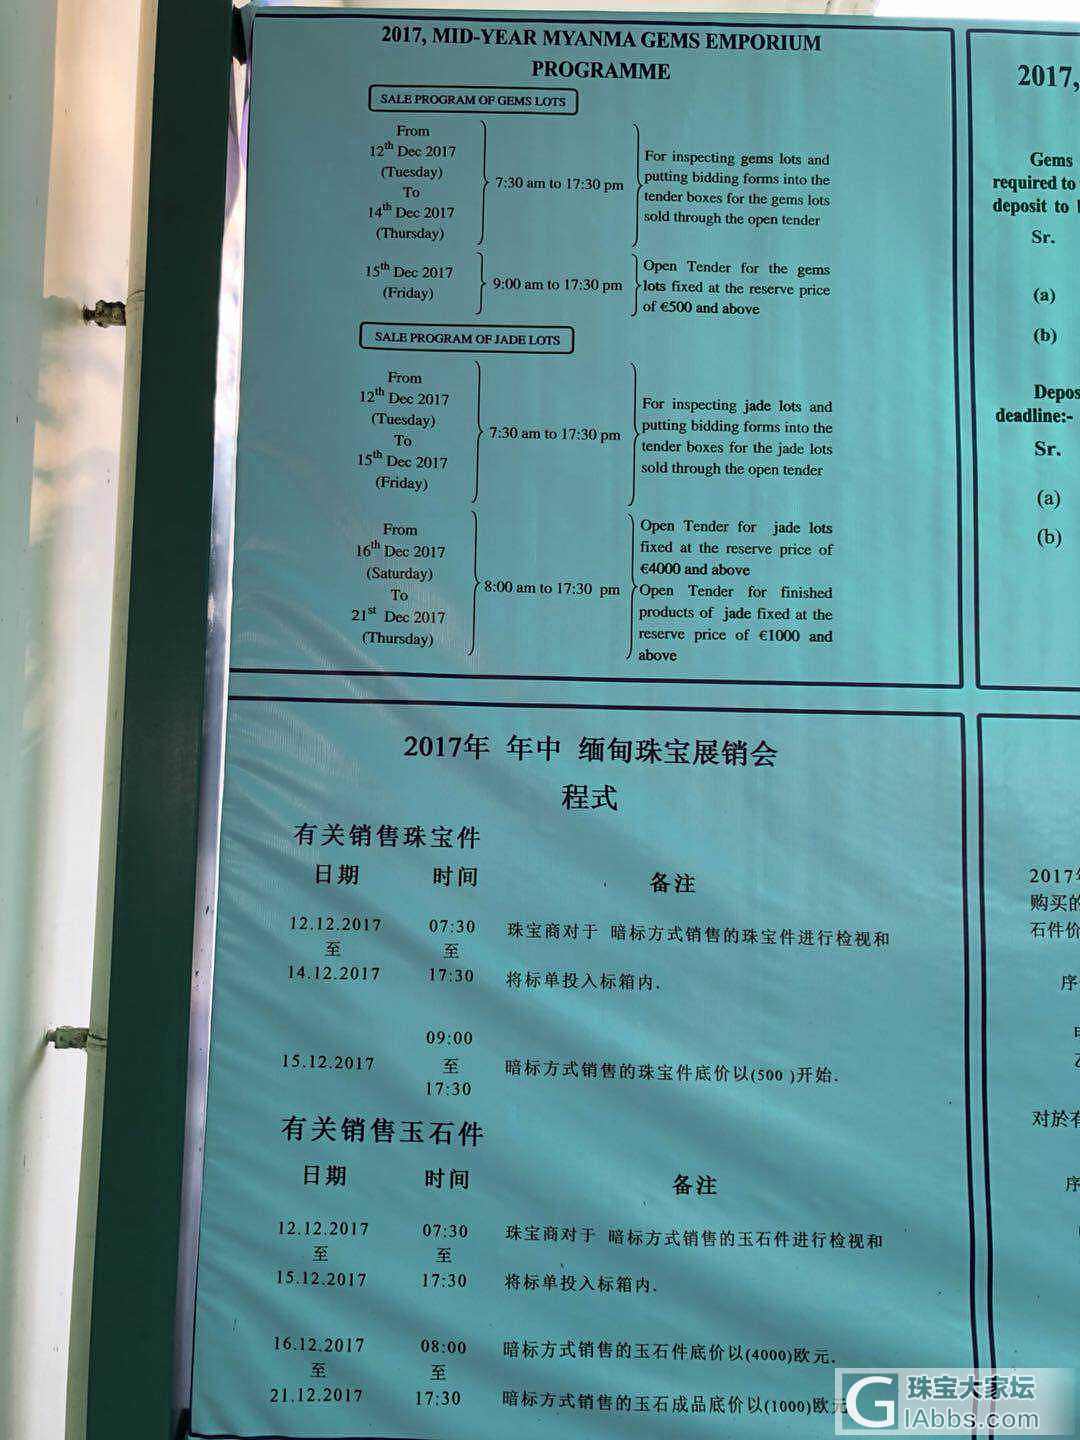 2017, MID-YEAR MYANMA GEMS EMPORIUM
PROGRAMME
SALE PROGRAM OF GEMS LOTS
From
12th Dec 2017
(Tuesday)
To
14th Dec 2017
(Thursday)
7:30 am to 17:30 pm
For inspecting gems lots and
putting bidding forms into the
tender boxes for the gems lots
sold through the open tender
15th Dec 2017
(Friday)
9:00 am to 17:30 pm
Open Tender for the gems
lots fixed at the reserve price
of €500 and above
SALE PROGRAM OF JADE LOTS
From
12th Dec 2017
(Tuesday)
To
15th Dec 2017
(Friday)
7:30 am to 17:30 pm
For inspecting jade lots and
putting bidding forms into the
tender boxes for the jade lots
sold through the open tender
From
16th Dec 2017
(Saturday)
To
21st Dec 2017
(Thursday)
8:00 am to 17:30 pm
Open Tender for jade lots
fixed at the reserve price of
€4000 and above
Open Tender for finished
products of jade fixed at the
reserve price of €1000 and
above
2017,
Gems
required to
deposit to
Sr.
(a)
(b)
Depos
deadline:-
Sr.
(a)
(b)
2017年 年中 缅甸珠宝展销会
程式
有关销售珠宝件
日期 时间 备注
12.12.2017 07:30 珠宝商对于 暗标方式销售的珠宝件进行检视和
至 至
14.12.2017 17:30 将标单投入标箱内.
09:00
15.12.2017 至 暗标方式销售的珠宝件底价以(500 )开始.
17:30
有关销售玉石件
日期 时间 备注
12.12.2017 07:30 珠宝商对于 暗标方式销售的玉石件进行检视和
至 至
15.12.2017 17:30 将标单投入标箱内.
16.12.2017 08:00 暗标方式销售的玉石件底价以(4000)欧元.
至 至
21.12.2017 17:30 暗标方式销售的玉石成品底价以(1000)欧元
2017
购买的
石件价
序
对於有
序
珠宝大家坛
GlAbbs.com